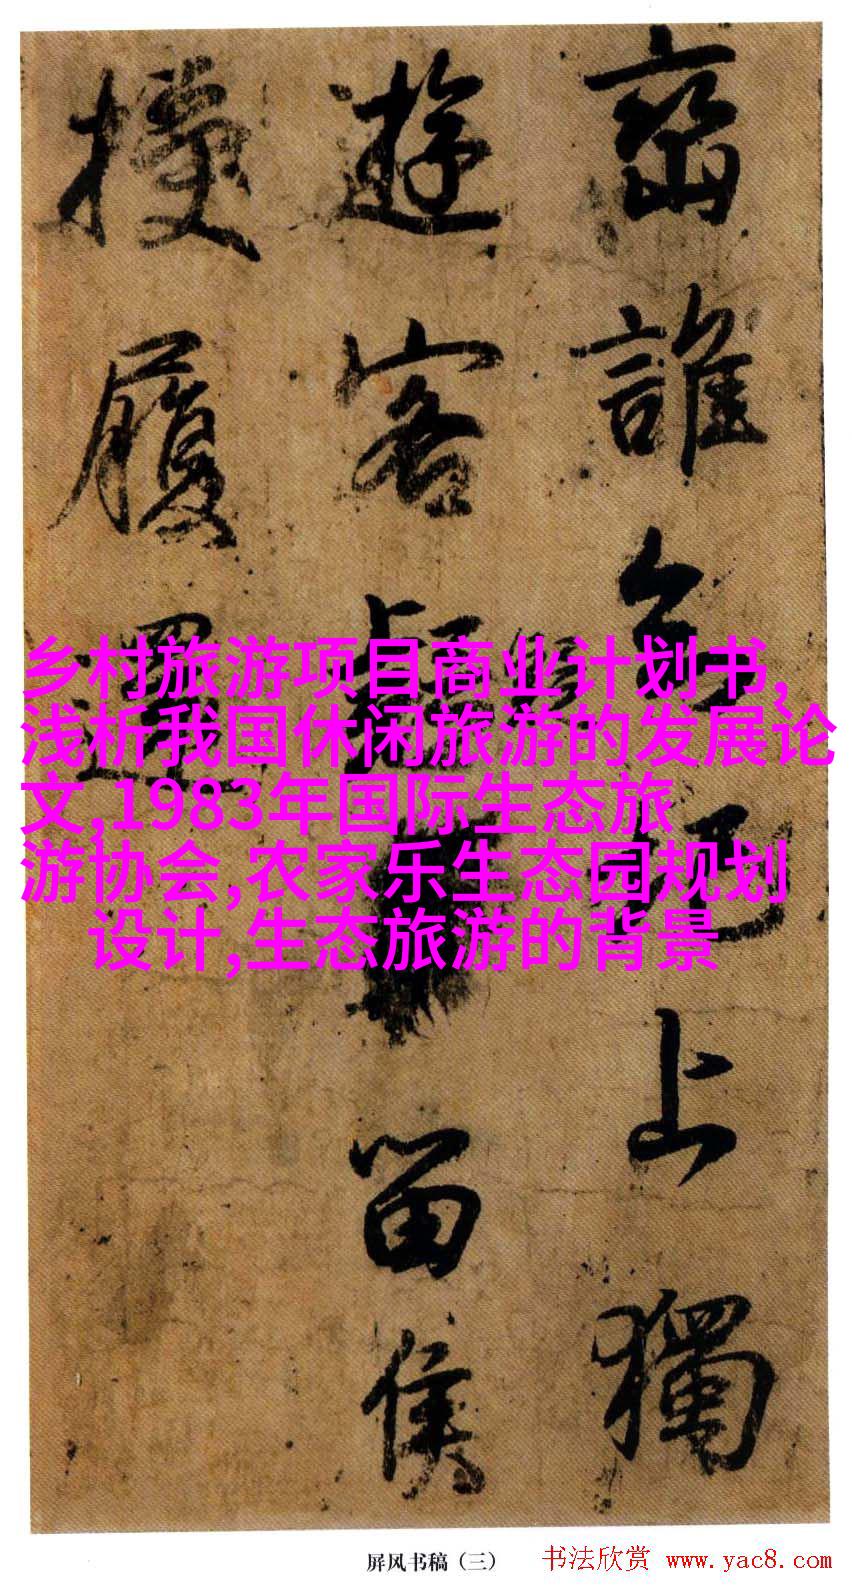 誰 圯上獨
遊客 留侯
履還
乡村旅游项目商业计划书,
浅析我国休闲旅游的发展论
文,1983年国际生态旅
游协会,农家乐生态园规划
设计,生态旅游的背景
屏风书稿（三） 书法欣赏 www.yac8.com